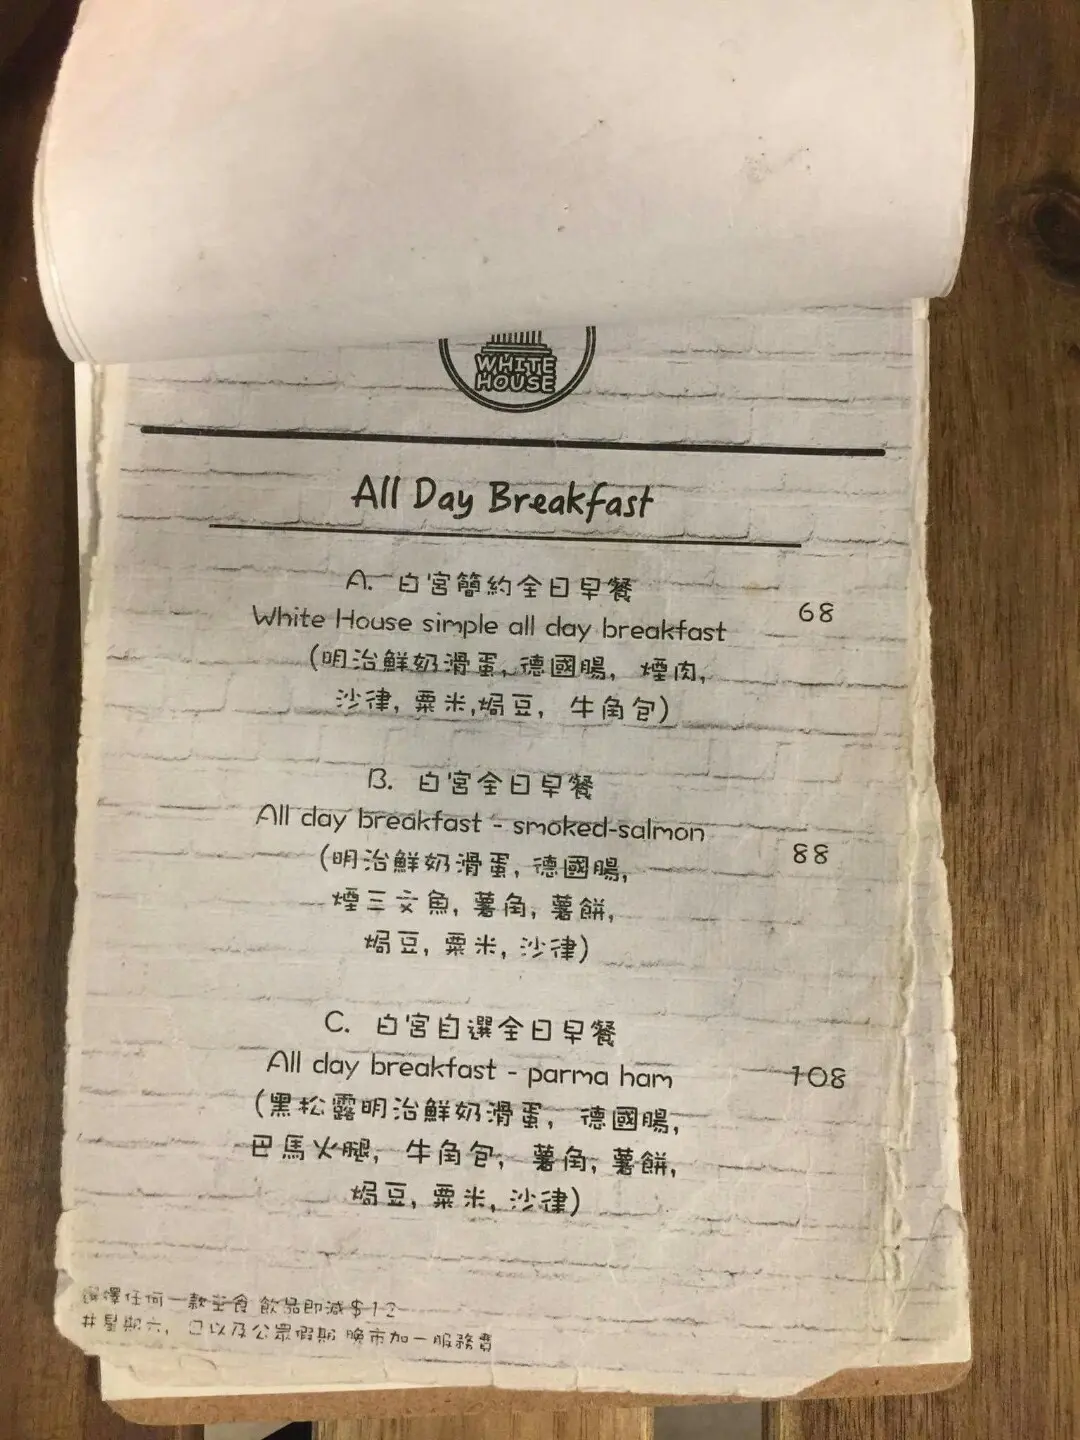 WHITE
HOUSE
All Day Breakfast
A. 白宮簡約全日早餐
68
White House simple all day breakfast
(明治鮮奶滑蛋, 德國腸, 煙肉,
沙律, 粟米, 焗豆, 牛角包)
B. 白宮全日早餐
All day breakfast - smoked-salmon
88
(明治鮮奶滑蛋, 德國腸,
煙三文魚, 薯角, 薯餅,
焗豆, 粟米, 沙律)
C. 白宮自選全日早餐
All day breakfast - parma ham
108
(黑松露明治鮮奶滑蛋, 德國腸,
巴馬火腿, 牛角包, 薯角, 薯餅,
焗豆, 粟米, 沙律)
選擇任何一款主食 飲品即減$12
#星期六, 日以及公眾假期 晚市加一服務費